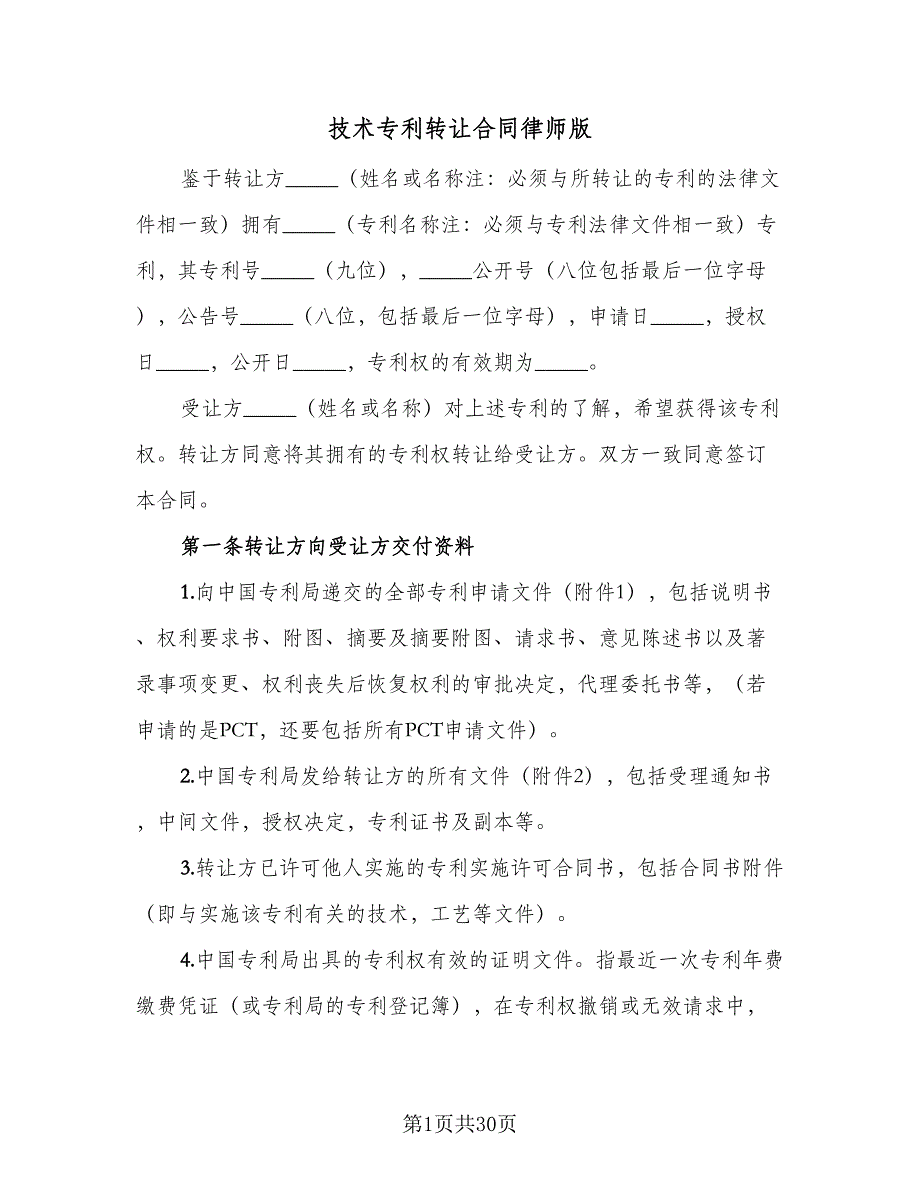 技术专利转让合同律师版
鉴于转让方_____（姓名或名称注：必须与所转让的专利的法律文
件相一致）拥有_____（专利名称注：必须与专利法律文件相一致）专
利，其专利号_____（九位），_____公开号（八位包括最后一位字母
），公告号_____（八位，包括最后一位字母），申请日_____，授权
日_____，公开日_____，专利权的有效期为_____。
受让方_____（姓名或名称）对上述专利的了解，希望获得该专利
权。转让方同意将其拥有的专利权转让给受让方。双方一致同意签订
本合同。
第一条转让方向受让方交付资料
1.向中国专利局递交的全部专利申请文件（附件1），包括说明书
、权利要求书、附图、摘要及摘要附图、请求书、意见陈述书以及著
录事项变更、权利丧失后恢复权利的审批决定，代理委托书等，（若
申请的是PCT，还要包括所有PCT申请文件）。
2.中国专利局发给转让方的所有文件（附件2），包括受理通知书
，中间文件，授权决定，专利证书及副本等。
3.转让方已许可他人实施的专利实施许可合同书，包括合同书附件
（即与实施该专利有关的技术，工艺等文件）。
4.中国专利局出具的专利权有效的证明文件。指最近一次专利年费
缴费凭证（或专利局的专利登记簿），在专利权撤销或无效请求中，
第1页共30页